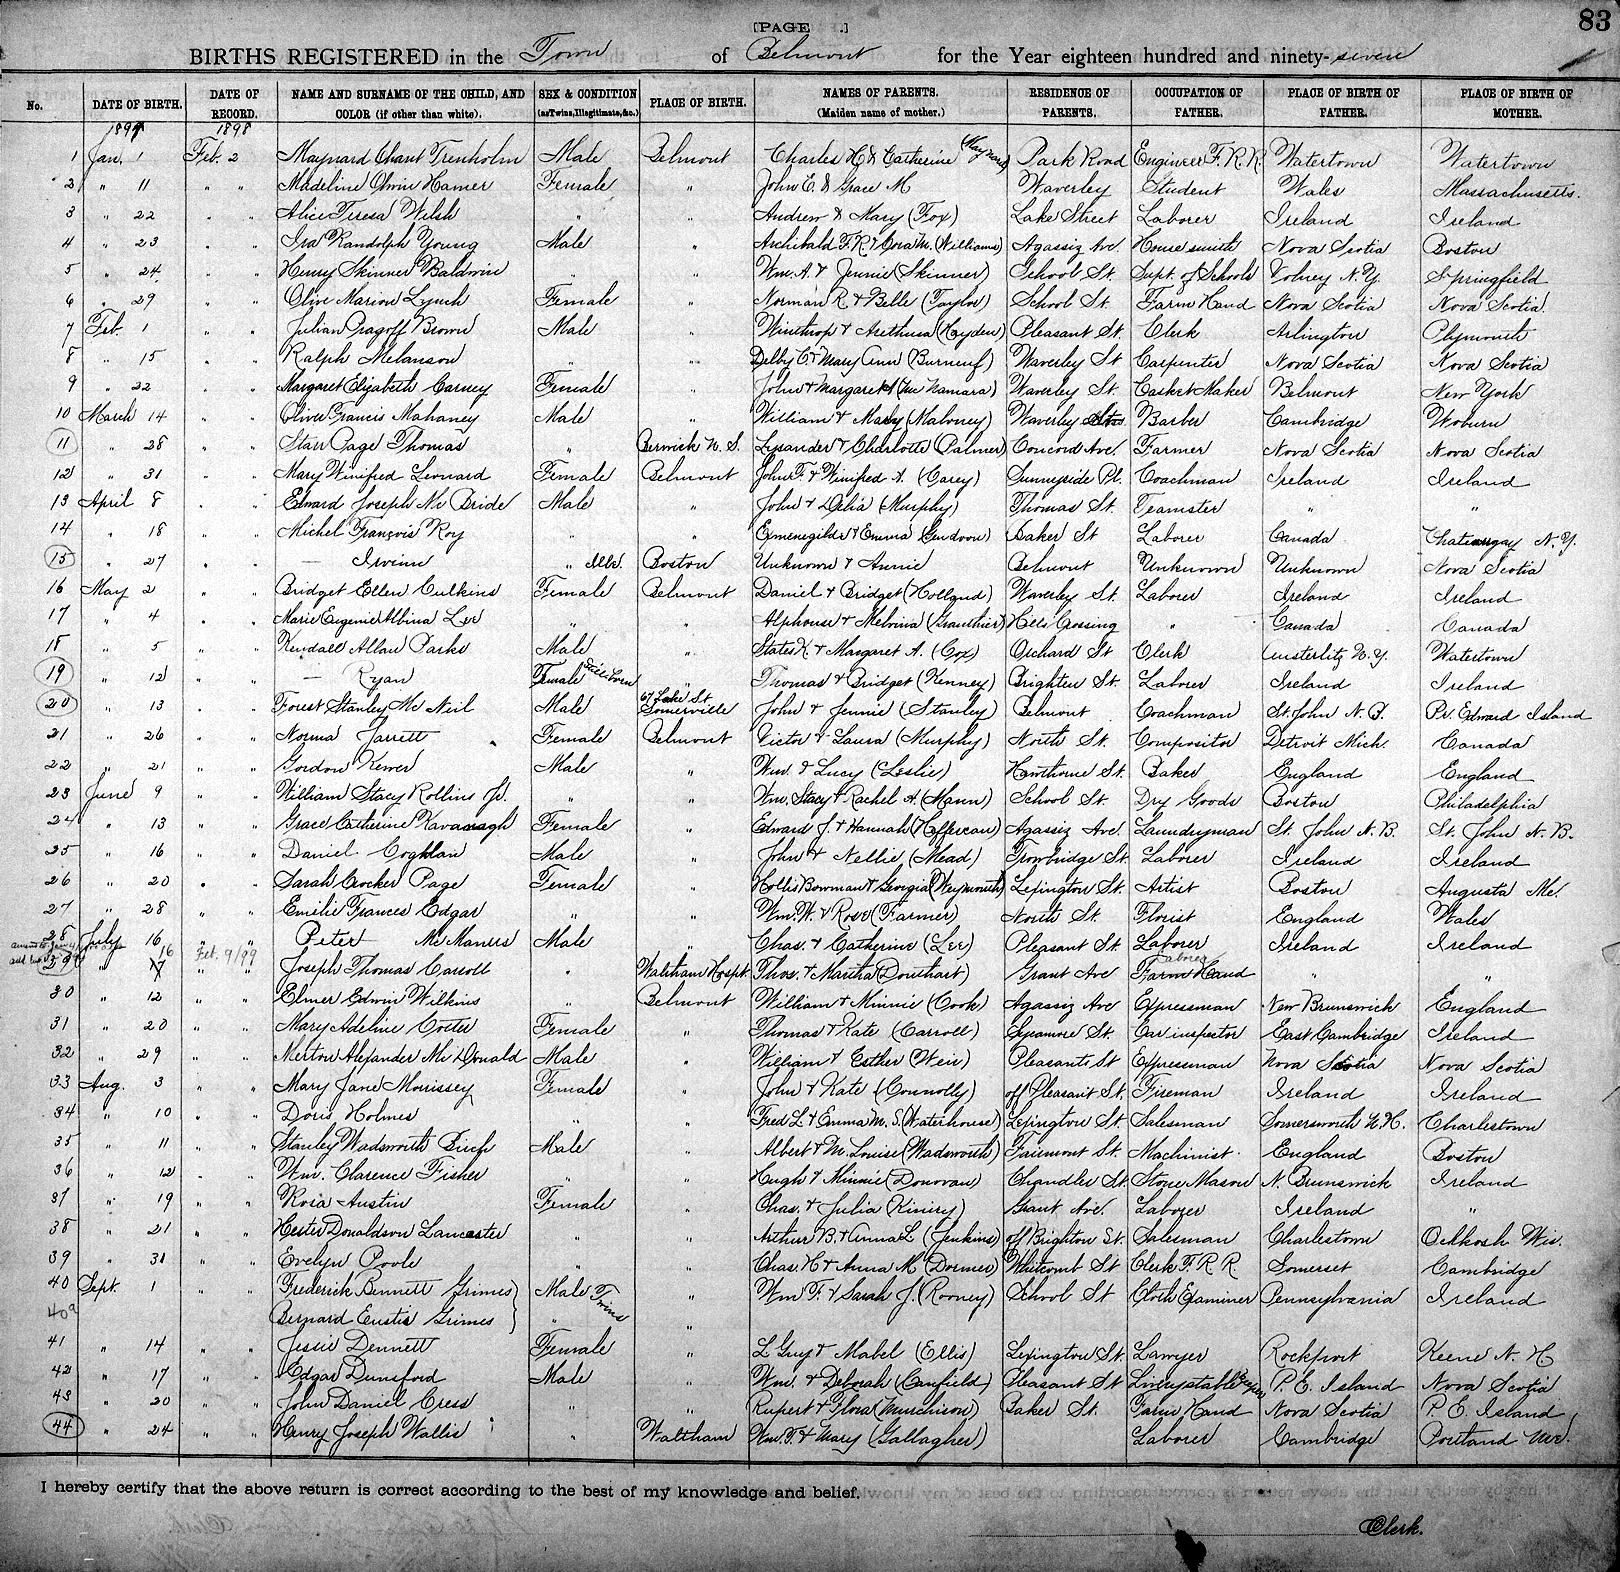 [PAGE .]
83
BIRTHS REGISTERED in the Town of Belmont for the Year eighteen hundred and ninety-seven
No. DATE OF BIRTH. DATE OF RECORD. NAME AND SURNAME OF THE CHILD, AND COLOR (if other than white). SEX & CONDITION (as Twins, Illegitimate, &c.) PLACE OF BIRTH. NAMES OF PARENTS. (Maiden name of mother.) RESIDENCE OF PARENTS. OCCUPATION OF FATHER. PLACE OF BIRTH OF FATHER. PLACE OF BIRTH OF MOTHER.
1897 1898
1 Jan. 1 Feb. 2 Maynard Chant Trenholm Male Belmont Charles H & Catherine (Maynard) Park Road Engineer F. R. R. Watertown Watertown
2 " 11 " " Madeline Olwin Hamer Female " John E. & Grace M Waverley Student Wales Massachusetts.
3 " 22 " " Alice Teresa Welsh " " Andrew & Mary (Fox) Lake Street Laborer Ireland Ireland
4 " 23 " " Ira Randolph Young Male " Archibald F. R & Cora M. (Williams) Agassiz Ave House smith Nova Scotia Boston
5 " 24 " " Henry Skinner Baldwin " " Wm. A. & Jennie (Skinner) School St. Supt. of Schools Volney N.Y. Springfield
6 " 29 " " Olive Marion Lynch Female " Norman R. & Belle (Taylor) School St. Farm Hand Nova Scotia Nova Scotia.
7 Feb. 1 " " Julian Brown Male " Winthrop & Arethusa (Hayden) Pleasant St. Clerk Arlington Plymouth
8 " 15 " " Ralph Melanson " " Delby C. & Mary Ann (Burneuf) Waverley St Carpenter Nova Scotia Nova Scotia
9 " 22 " " Margaret Elizabeth Carney Female " John & Margaret (Mc Namara) Waverley St. Casket Maker Belmont New York
10 March 14 " " Oliver Francis Mahaney Male " William & Mary (Mahoney) Waverley Barber Cambridge Woburn
11 " 28 " " Starr Page Thomas " Berwick N. S. Lysander & Charlotte (Palmer) Concord Ave. Farmer Nova Scotia Nova Scotia
12 " 31 " " Mary Winifred Leonard Female Belmont John F. & Winifred A. (Carey) Sunnyside Pl. Coachman Ireland Ireland
13 April 8 " " Edward Joseph Mc Bride Male " John & Delia (Murphy) Thomas St. Teamster " "
14 " 18 " " Michel François Roy " " Ermenegilde & Emma (Gendron) Baker St Laborer Canada Chateaugay N. Y.
15 " 27 " " — Irvine " Illg. Boston Unknown & Annie Belmont Unknown Unknown Nova Scotia
16 May 2 " " Bridget Ellen Culkins Female Belmont Daniel & Bridget (Holland) Waverley St. Laborer Ireland Ireland
17 " 4 " " Marie Eugenie Albina Lee " " Alphonse & Melvina (Grauthier) Hills Crossing " Canada Canada
18 " 5 " " Kendall Allan Parks Male " States K. & Margaret A. (Cox) Orchard St Clerk Austerlitz N.Y. Watertown
19 " 12 " " — Ryan Female Still born " Thomas & Bridget (Kenney) Brighton St. Laborer Ireland Ireland
20 " 13 " " Forest Stanley Mc Neil Male 67 Lake St. Somerville John & Jennie (Stanley) Belmont Coachman St. John N. B. Pr. Edward Island
21 " 26 " " Norma Jarrett Female Belmont Victor & Laura (Murphy) North St. Compositor Detroit Mich. Canada
22 " 21 " " Gordon Kewer Male " Wm. & Lucy (Leslie) Hawthorne St. Baker England England
23 June 9 " " William Stacy Rollins Jr. " " Wm. Stacy & Rachel A. (Mann) School St. Dry Goods Boston Philadelphia
24 " 13 " " Grace Catherine Kavanagh Female " Edward J. & Hannah (Heffernan) Agassiz Ave. Laundryman St. John N. B. St. John N. B.
25 " 16 " " Daniel Coghlan Male " John & Nellie (Mead) Trowbridge St. Laborer Ireland Ireland
26 " 20 " " Sarah Crocker Page Female " Hollis Bowman & Georgia (Weymouth) Lexington St. Artist Boston Augusta Me.
27 " 28 " " Emilie Frances Edgar " " Wm. W. & Rose (Farmer) North St. Florist England Wales
28 July 16 " " Peter Mc Manus Male " Chas. & Catherine (Lee) Pleasant St. Laborer Ireland Ireland
29 " 17 16 Feb. 9/99 Joseph Thomas Carroll " Waltham Hospt. Thos. & Martha (Douthart) Grant Ave Farm Hand Laborer " "
30 " 12 " " Elmer Edwin Wilkins " Belmont William & Minnie (Cook) Agassiz Ave Expressman New Brunswick England
31 " 20 " " Mary Adeline Coster Female " Thomas & Kate (Carroll) Sycamore St. Car inspector East Cambridge Ireland
32 " 29 " " Merton Alexander Mc Donald Male " William & Esther (Weir) Pleasant St Expressman Nova Scotia Nova Scotia
33 Aug. 3 " " Mary Jane Morrissey Female " John & Kate (Connolly) off Pleasant St. Fireman Ireland Ireland
34 " 10 " " Doris Holmes " " Fred L. & Emma M. S. (Waterhouse) Lexington St. Salesman Somersworth N.H. Charlestown
35 " 11 " " Stanley Wadsworth Birch Male " Albert & M. Louise (Wadsworth) Fairmont St. Machinist England Boston
36 " 12 " " Wm. Clarence Fisher " " Hugh & Minnie (Donovan) Chandler St. Stone Mason N. Brunswick Ireland
37 " 19 " " Rosa Austin Female " Chas. & Julia (Kiniry) Grant Ave. Laborer Ireland "
38 " 21 " " Hester Donaldson Lancaster " " Arthur B. & Anna L (Jenkins) off Brighton St. Salesman Charlestown Oshkosh Wis.
39 " 31 " " Evelyn Poole " " Chas. H. & Anna M (Dormer) Whitcomb St Clerk F. R. R. Somerset Cambridge
40 Sept. 1 " " Frederick Bennett Grimes Male Twins " Wm F. & Sarah J. (Rooney) School St Cloth Examiner Pennsylvania Ireland
40a Bernard Eustis Grimes " "
41 " 14 " " Jessie Dennett Female " L Guy & Mabel (Ellis) Lexington St. Lawyer Rockport Keene N. H
42 " 17 " " Edgar Dunsford Male " Wm. & Deborah (Canfield) Pleasant St Livery stable keeper P. E. Island Nova Scotia
43 " 20 " " John Daniel Cress " " Rupert & Flora (Murchison) Baker St. Farm Hand Nova Scotia P. E. Island
44 " 24 " " Henry Joseph Wallis " Waltham Wm. F. & Mary (Gallagher) Laborer Cambridge Portland Me.
I hereby certify that the above return is correct according to the best of my knowledge and belief.
Clerk.